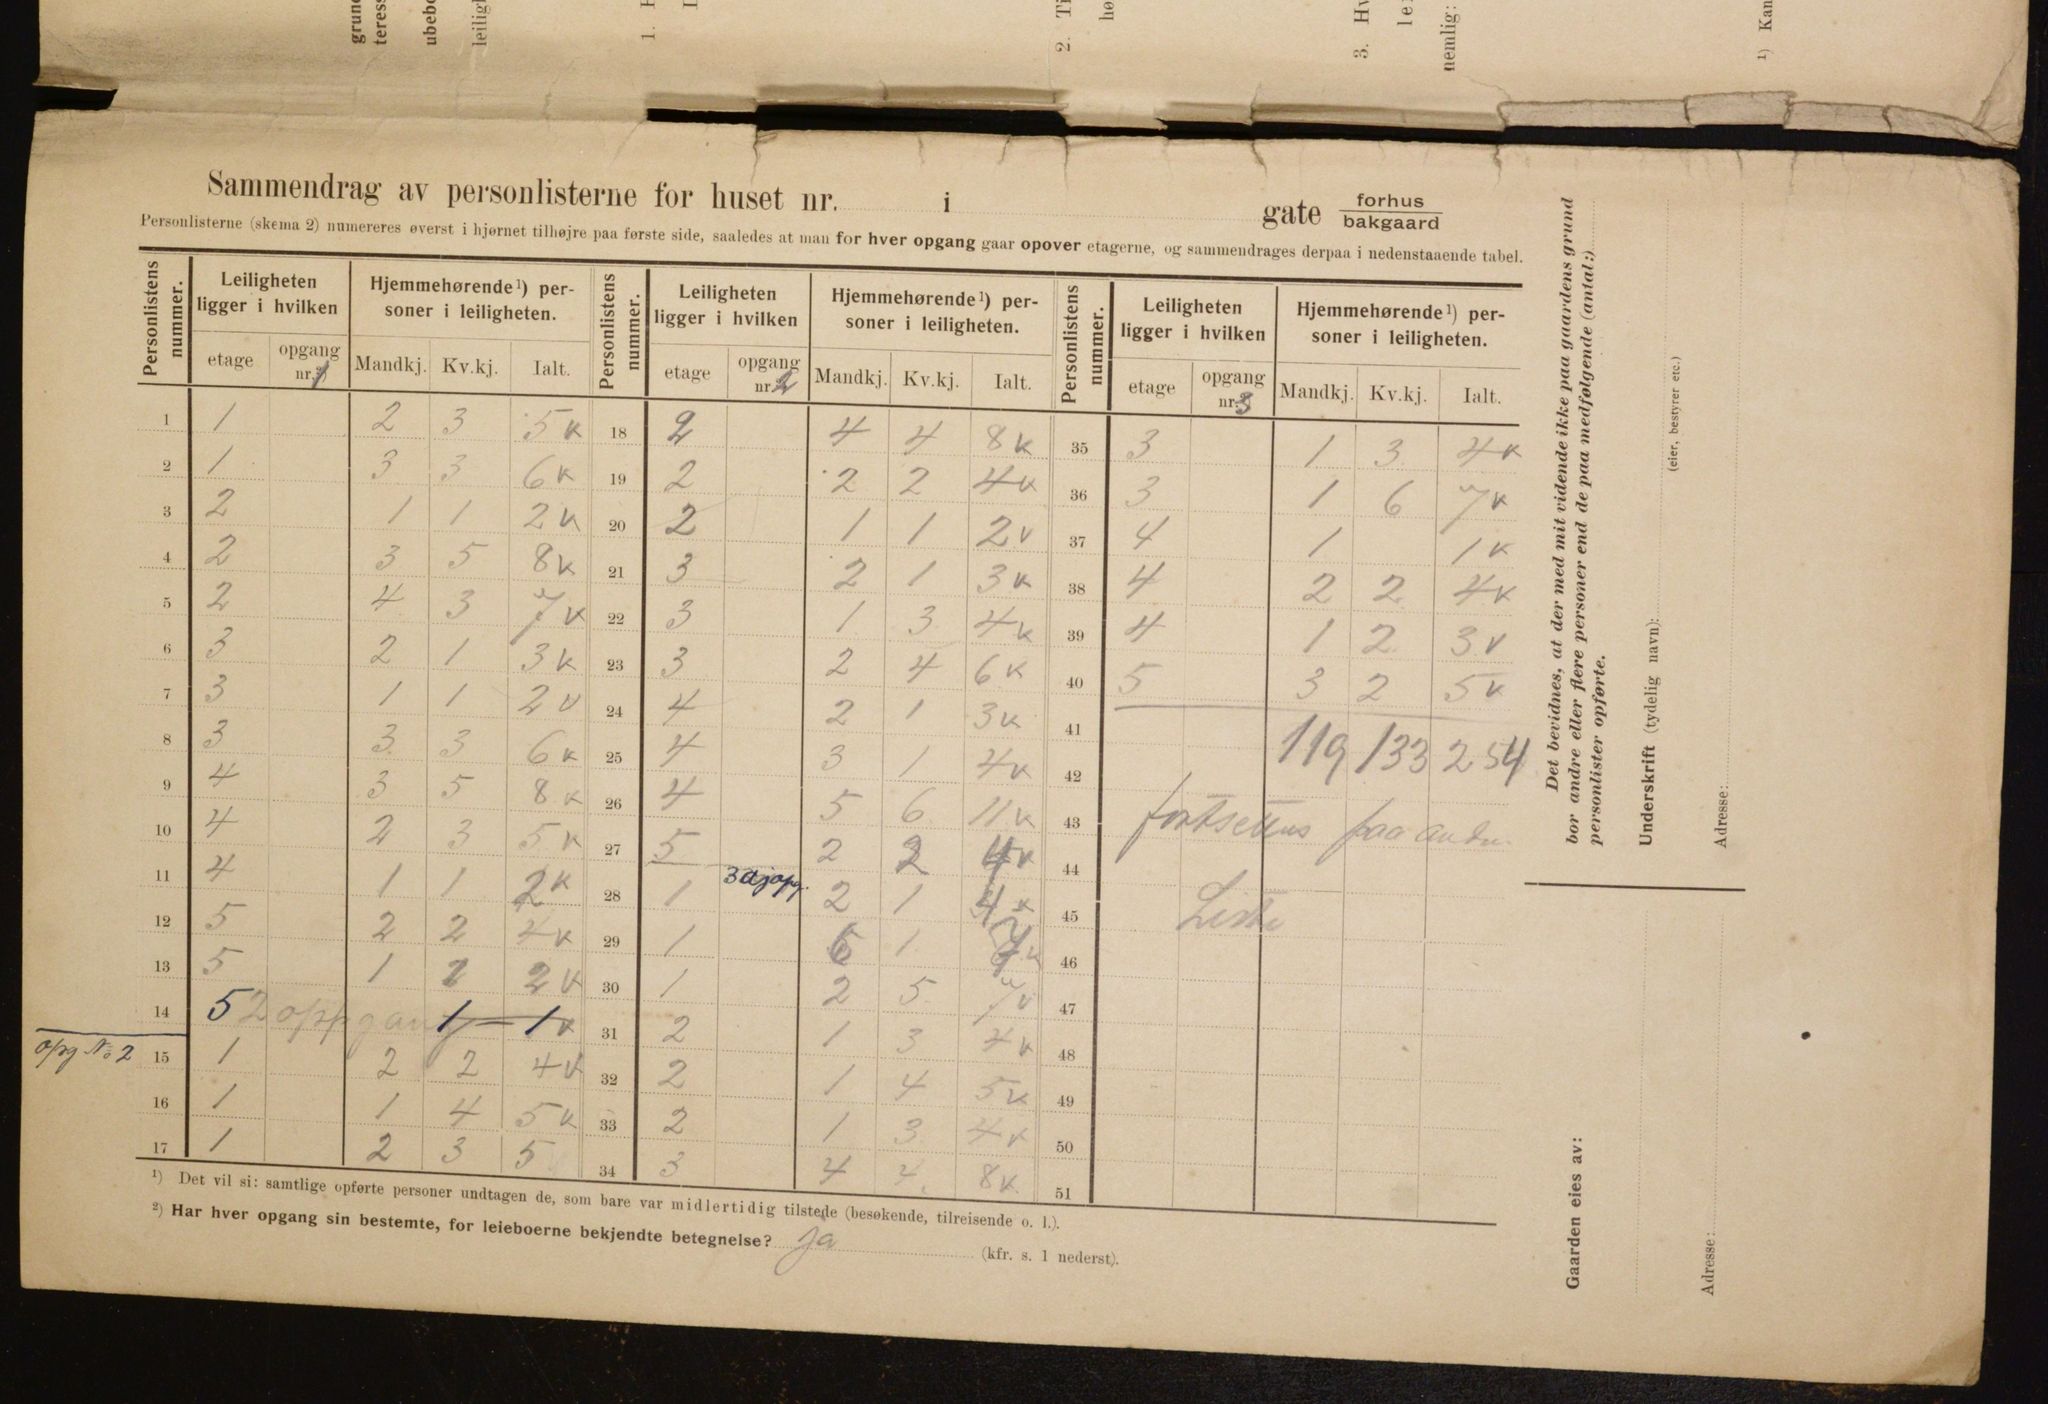 grund
teress
ubebo
leiligh
1. H
2. Ti
hø
3. Hv
lei
nemlig:
¹) Kan
Sammendrag av personlisterne for huset nr. i gate forhus
bakgaard
Personlisterne (skema 2) numereres øverst i hjørnet tilhøjre paa første side, saaledes at man for hver opgang gaar opover etagerne, og sammendrages derpaa i nedenstaaende tabel.
Personlistens nummer. Leiligheten ligger i hvilken Hjemmehørende¹) personer i leiligheten. Personlistens nummer. Leiligheten ligger i hvilken Hjemmehørende¹) personer i leiligheten. Personlistens nummer. Leiligheten ligger i hvilken Hjemmehørende¹) personer i leiligheten.
etage opgang nr. 1 Mandkj. Kv.kj. Ialt. etage opgang nr. 2 Mandkj. Kv.kj. Ialt. etage opgang nr. 3 Mandkj. Kv.kj. Ialt.
1 1 2 3 5 v 18 2 4 4 8 v 35 3 1 3 4 v
2 1 3 3 6 v 19 2 2 2 4 v 36 3 1 6 7 v
3 2 1 1 2 v 20 2 1 1 2 v 37 4 1 1 v
4 2 3 5 8 v 21 3 2 1 3 v 38 4 2 2 4 v
5 2 4 3 7 v 22 3 1 3 4 v 39 4 1 2 3 v
6 3 2 1 3 v 23 3 2 4 6 v 40 5 3 2 5 v
7 3 1 1 2 v 24 4 2 1 3 v 41 119 133 254
8 3 3 3 6 v 25 4 3 1 4 v 42
9 4 3 5 8 v 26 4 5 6 11 v 43 fortsettes paa andre
10 4 2 3 5 v 27 5 2 2 4 v 44
11 4 1 1 2 v 28 1 3dj opg. 2 1 v 45 Liste
12 5 2 2 4 v 29 1 6 1 7 v 46
13 5 1 2 v 30 1 2 5 7 v 47
14 5 2 oppgang 1 1 v 31 2 1 3 4 v 48
opg No 2
15 1 2 2 4 v 32 2 1 4 5 v 49
16 1 1 4 5 v 33 2 1 3 4 v 50
17 1 2 3 5 34 3 4 4 8 v 51
¹) Det vil si: samtlige opførte personer undtagen de, som bare var midlertidig tilstede (besøkende, tilreisende o. l.).
²) Har hver opgang sin bestemte, for leieboerne bekjendte betegnelse? Ja (kfr. s. 1 nederst).
Det bevidnes, at der med mit vidende ikke paa gaardens grund
bor andre eller flere personer end de paa medfølgende (antal:)
personlister opførte.
Underskrift (tydelig navn):
(eier, bestyrer etc.)
Adresse:
Gaarden eies av:
Adresse: